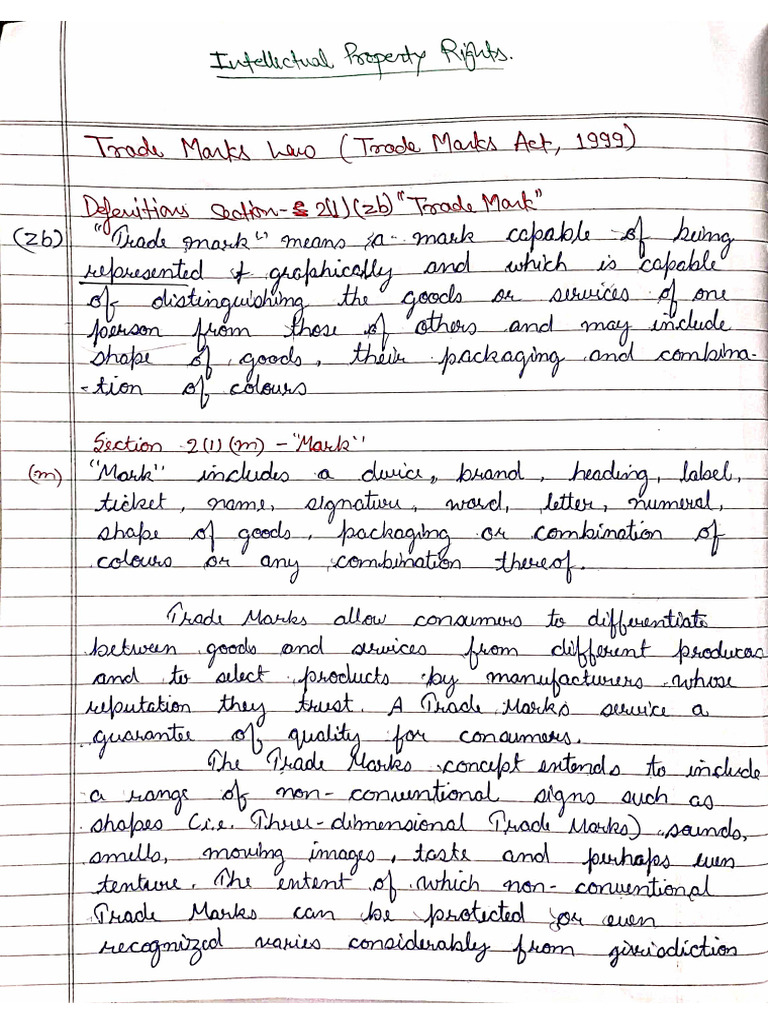 Intellectual Property Rights.
Trade Marks Law (Trade Marks Act, 1999)
Definitions Section- 2(1)(zb) "Trade Mark"
(zb) "Trade mark" means a mark capable of being
represented graphically and which is capable
of distinguishing the goods or services of one
person from those of others and may include
shape of goods, their packaging and combina-
-tion of colours
Section 2(1)(m) - "Mark"
(m) "Mark" includes a device, brand, heading, label,
ticket, name, signature, word, letter, numeral,
shape of goods, packaging or combination of
colours or any combination thereof.
Trade Marks allow consumers to differentiate
between goods and services from different producers
and to select products by manufacturers whose
reputation they trust. A Trade Marks service a
guarantee of quality for consumers.
The Trade Marks concept entends to include
a range of non-conventional signs such as
shapes (i.e. Three-dimensional Trade Marks) sounds,
smells, moving images, taste and perhaps even
tenture. The entent of which non-conventional
Trade Marks can be protected or even
recognized varies considerably from girisdiction